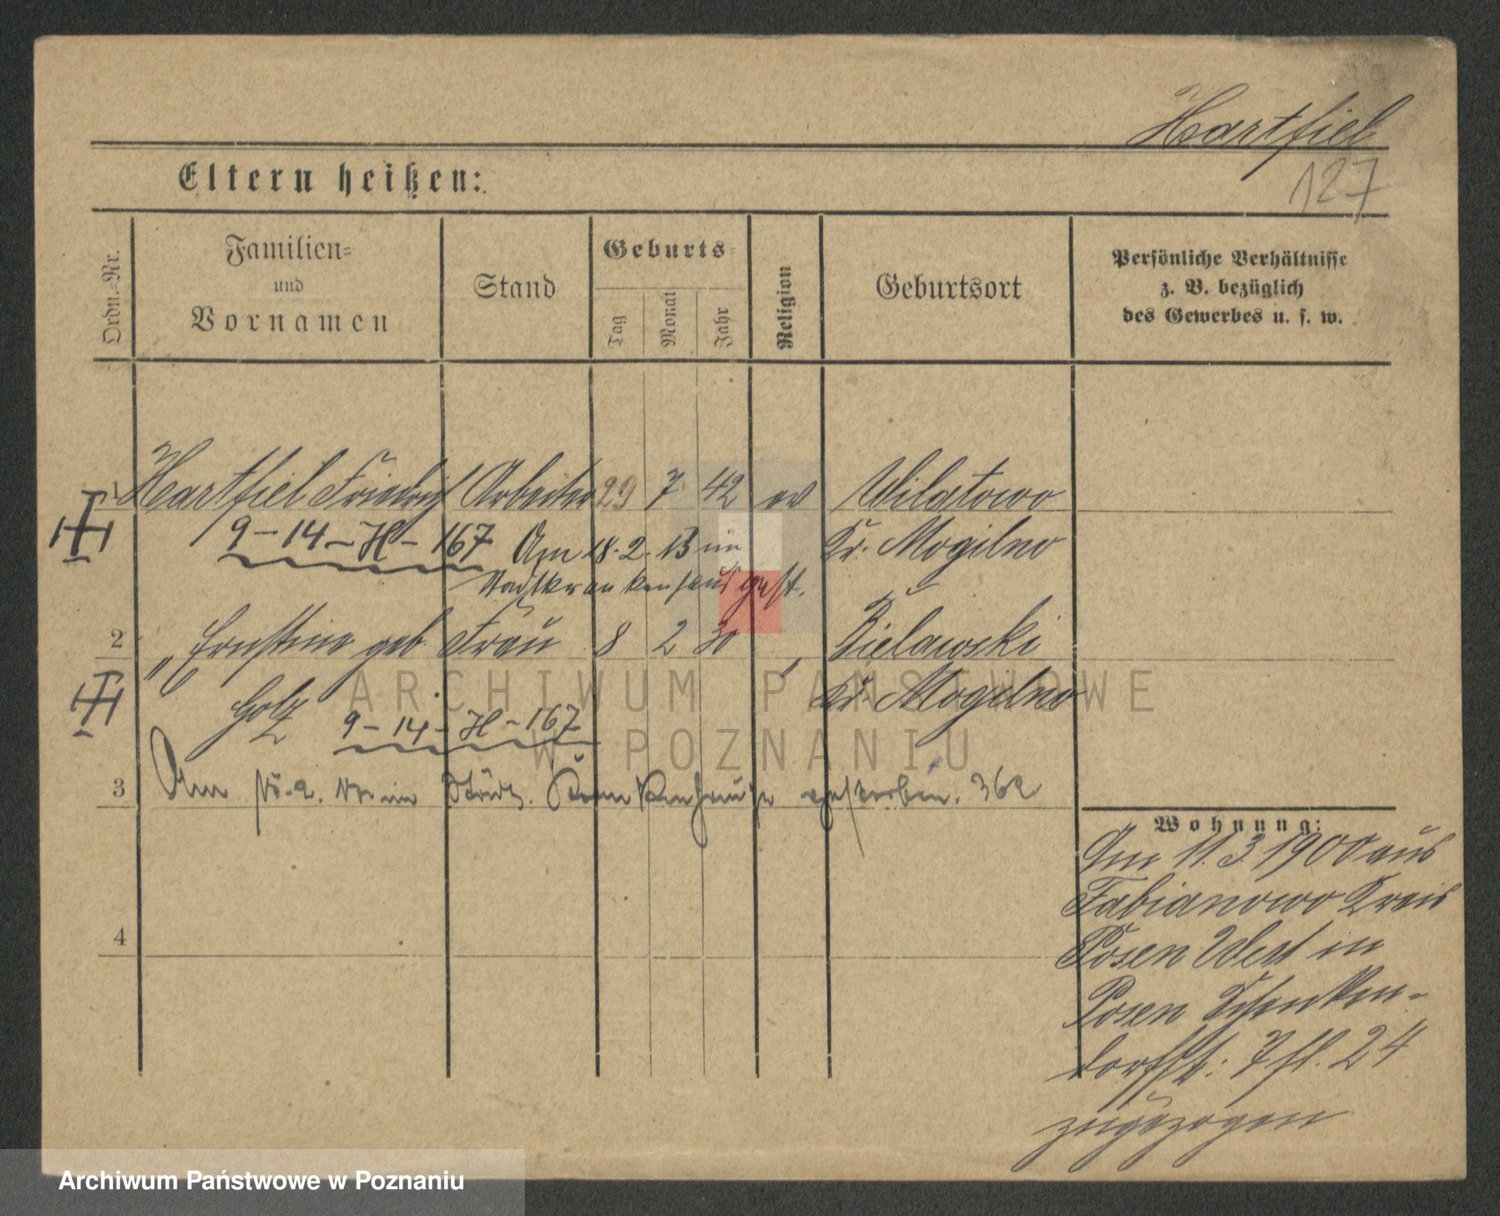 Hartfiel
127
Eltern heißen:
Ordn.-Nr.
Familien- und Vornamen
Stand
Geburts-
Tag
Monat
Jahr
Religion
Geburtsort
Persönliche Verhältnisse
z. B. bezüglich
des Gewerbes u. s. w.
1 Hartfiel Friedrich Arbeiter 29 7 42 ev Wilatowo
9-14-H-167 Am 18.2.13 im Kr. Mogilno
Stadtkrankenhaus gest.
2 " Ernstine geb Frau 8 2 30 " Bielawski
Golz Kr. Mogilno
9-14-H-167
3 Am im Städt. Krankenhause gestorben. 362
4
Wohnung:
Am 11.3.1900 aus
Fabianowo Kreis
Posen West in
Posen Schenken-
dorffst: 7 fl. 24
zugezogen
ARCHIWUM PAŃSTWOWE
W POZNANIU
Archiwum Państwowe w Poznaniu